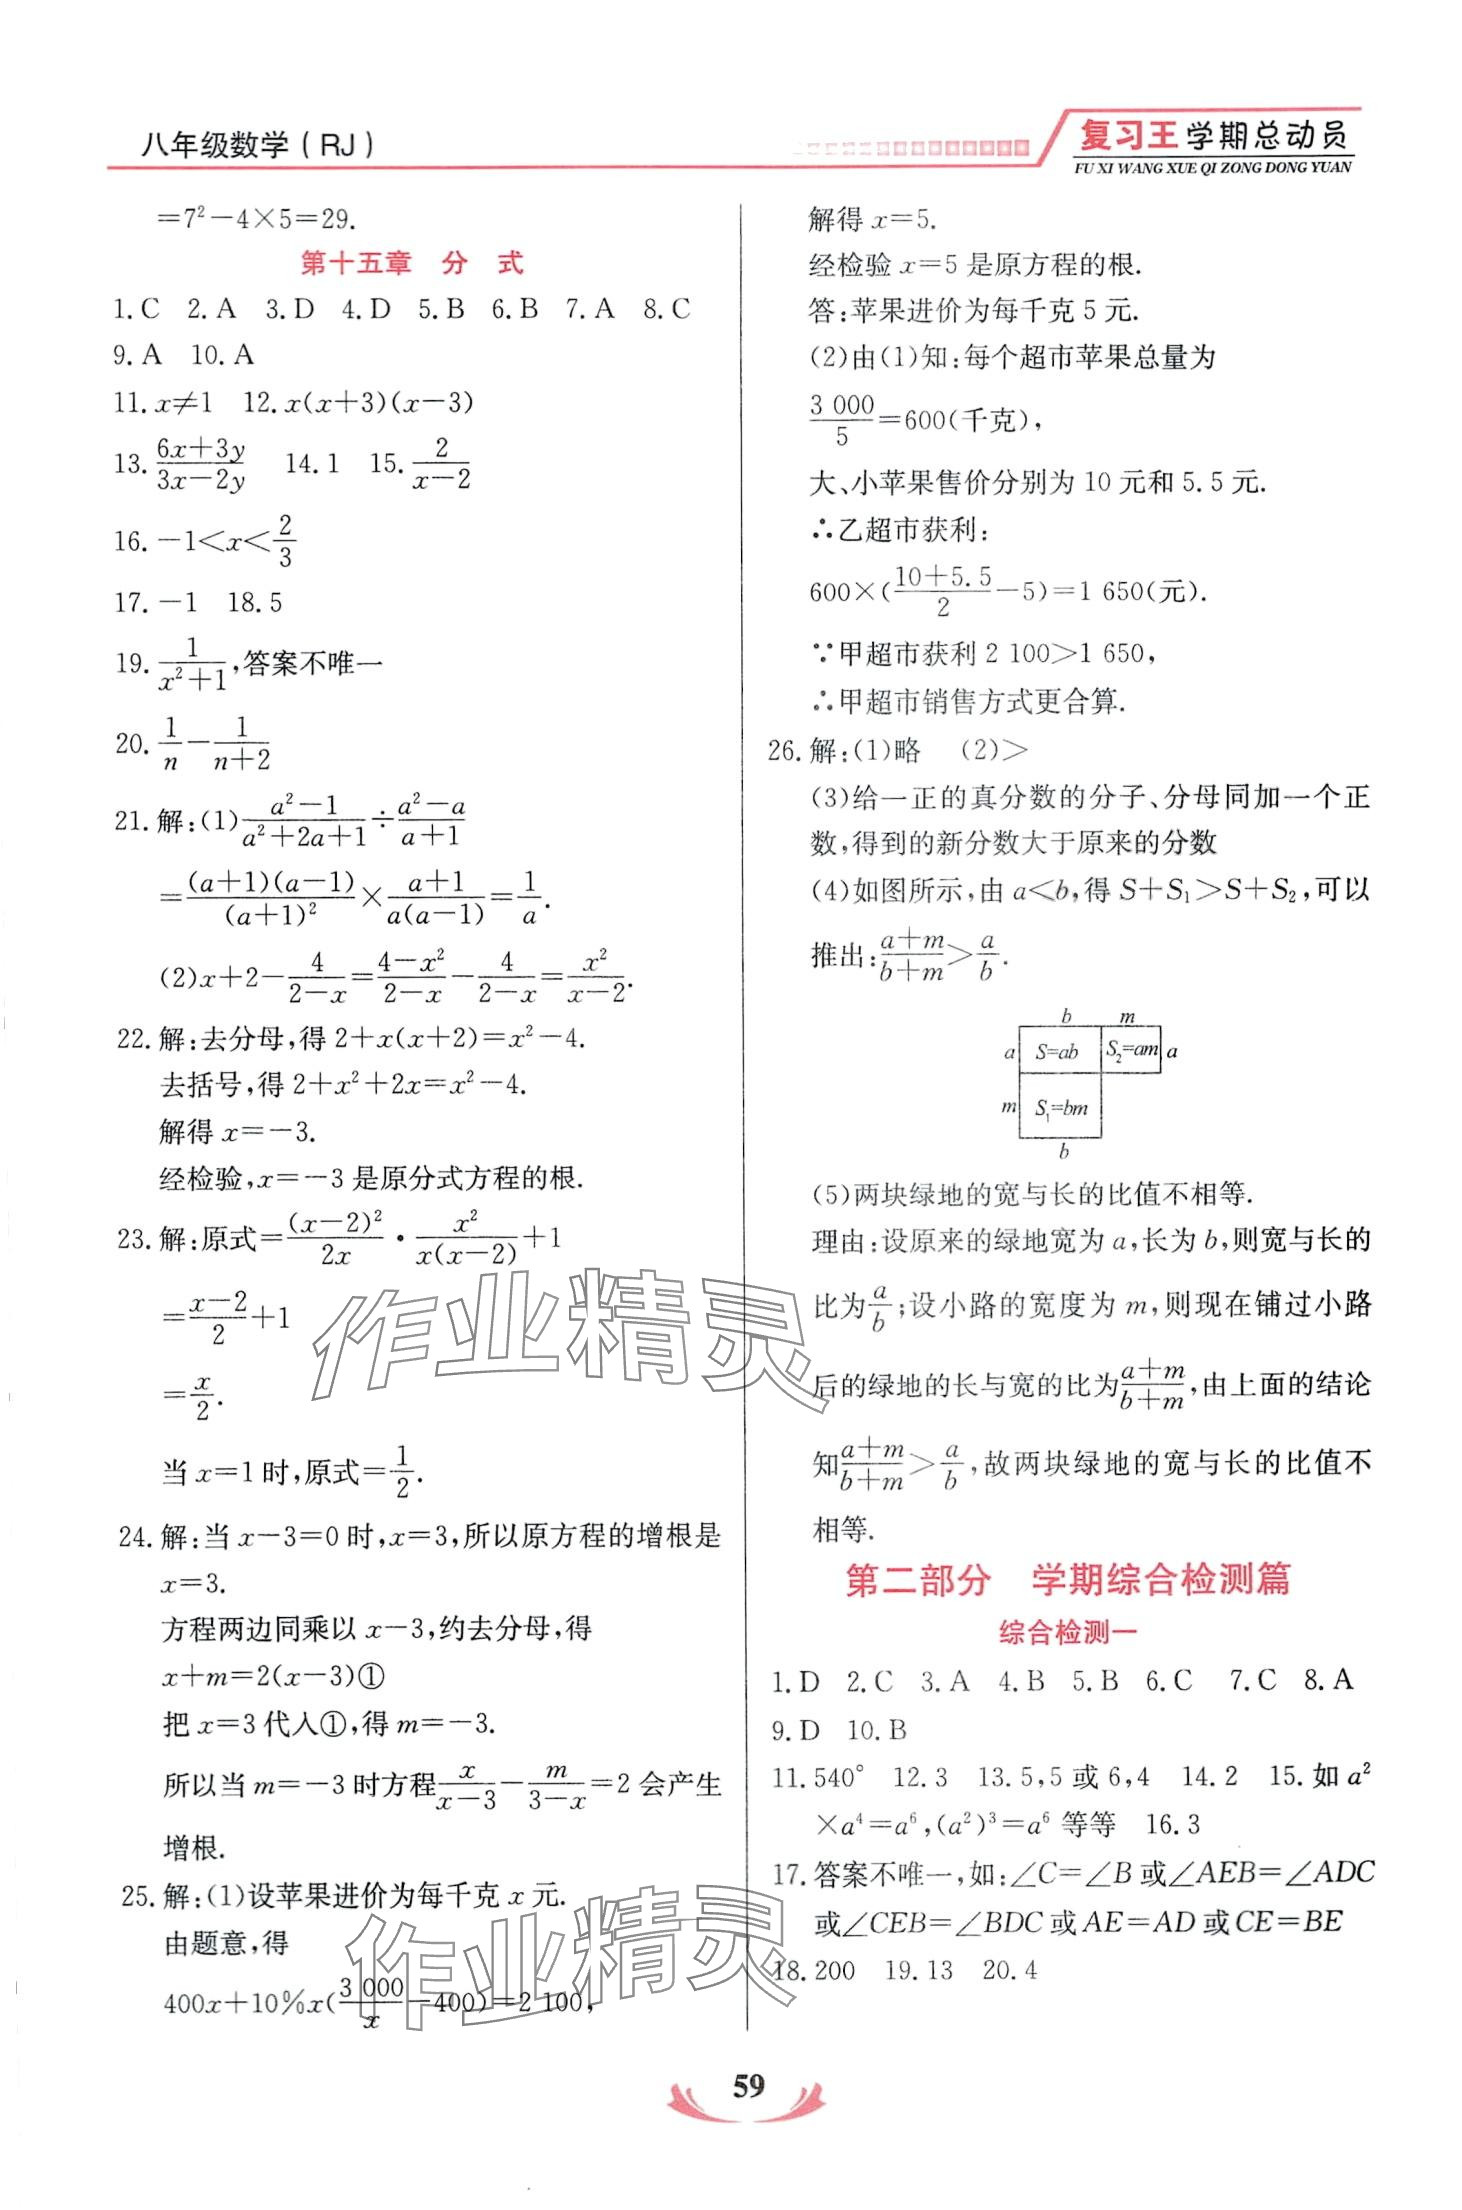 八年级数学(RJ)
复习王学期总动员
FU XI WANG XUE QI ZONG DONG YUAN
=7²-4×5=29.
第十五章 分 式
1.C 2.A 3.D 4.D 5.B 6.B 7.A 8.C
9.A 10.A
11.x≠1 12.x(x+3)(x-3)
13.(6x+3y)/(3x-2y) 14.1 15.2/(x-2)
16.-1<x<2/3
17.-1 18.5
19.1/(x²+1),答案不唯一
20.1/n-1/(n+2)
21.解:(1)(a²-1)/(a²+2a+1)÷(a²-a)/(a+1)
=(a+1)(a-1)/(a+1)²×(a+1)/a(a-1)=1/a.
(2)x+2-4/(2-x)=(4-x²)/(2-x)-4/(2-x)=x²/(x-2).
22.解:去分母,得2+x(x+2)=x²-4.
去括号,得2+x²+2x=x²-4.
解得x=-3.
经检验,x=-3是原分式方程的根.
23.解:原式=(x-2)²/2x·x²/x(x-2)+1
=(x-2)/2+1
=x/2.
当x=1时,原式=1/2.
24.解:当x-3=0时,x=3,所以原方程的增根是
x=3.
方程两边同乘以x-3,约去分母,得
x+m=2(x-3)①
把x=3代入①,得m=-3.
所以当m=-3时方程x/(x-3)-m/(3-x)=2会产生
增根.
25.解:(1)设苹果进价为每千克x元.
由题意,得
400x+10%x(3 000/x-400)=2 100,
解得x=5.
经检验x=5是原方程的根.
答:苹果进价为每千克5元.
(2)由(1)知:每个超市苹果总量为
3 000/5=600(千克),
大、小苹果售价分别为10元和5.5元.
∴乙超市获利:
600×((10+5.5)/2-5)=1 650(元).
∵甲超市获利2 100>1 650,
∴甲超市销售方式更合算.
26.解:(1)略 (2)>
(3)给一正的真分数的分子、分母同加一个正
数,得到的新分数大于原来的分数
(4)如图所示,由a<b,得S+S₁>S+S₂,可以
推出:(a+m)/(b+m)>a/b.
b m
a S=ab S₂=am a
m S₁=bm
b
(5)两块绿地的宽与长的比值不相等.
理由:设原来的绿地宽为a,长为b,则宽与长的
比为a/b;设小路的宽度为m,则现在铺过小路
后的绿地的长与宽的比为(a+m)/(b+m),由上面的结论
知(a+m)/(b+m)>a/b,故两块绿地的宽与长的比值不
相等.
第二部分 学期综合检测篇
综合检测一
1.D 2.C 3.A 4.B 5.B 6.C 7.C 8.A
9.D 10.B
11.540° 12.3 13.5,5或6,4 14.2 15.如a²
×a⁴=a⁶,(a²)³=a⁶等等 16.3
17.答案不唯一,如:∠C=∠B或∠AEB=∠ADC
或∠CEB=∠BDC或AE=AD或CE=BE
18.200 19.13 20.4
59
作业精灵
作业精灵